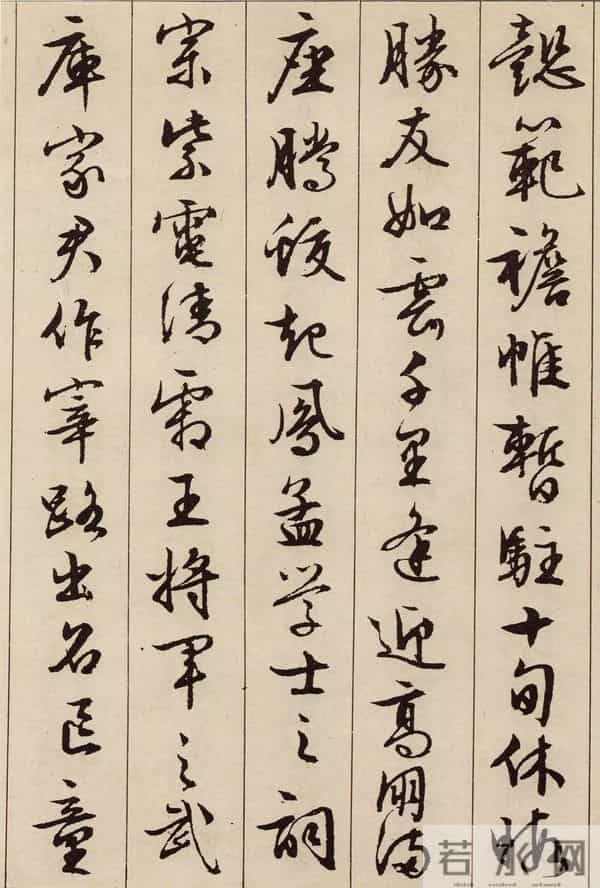 懿範襜帷暫駐十旬休
勝友如雲千里逢迎高朋滿
座騰蛟起鳳孟学士之詞
宗紫電清霜王將軍之武
庫家君作宰路出名區童
若水网